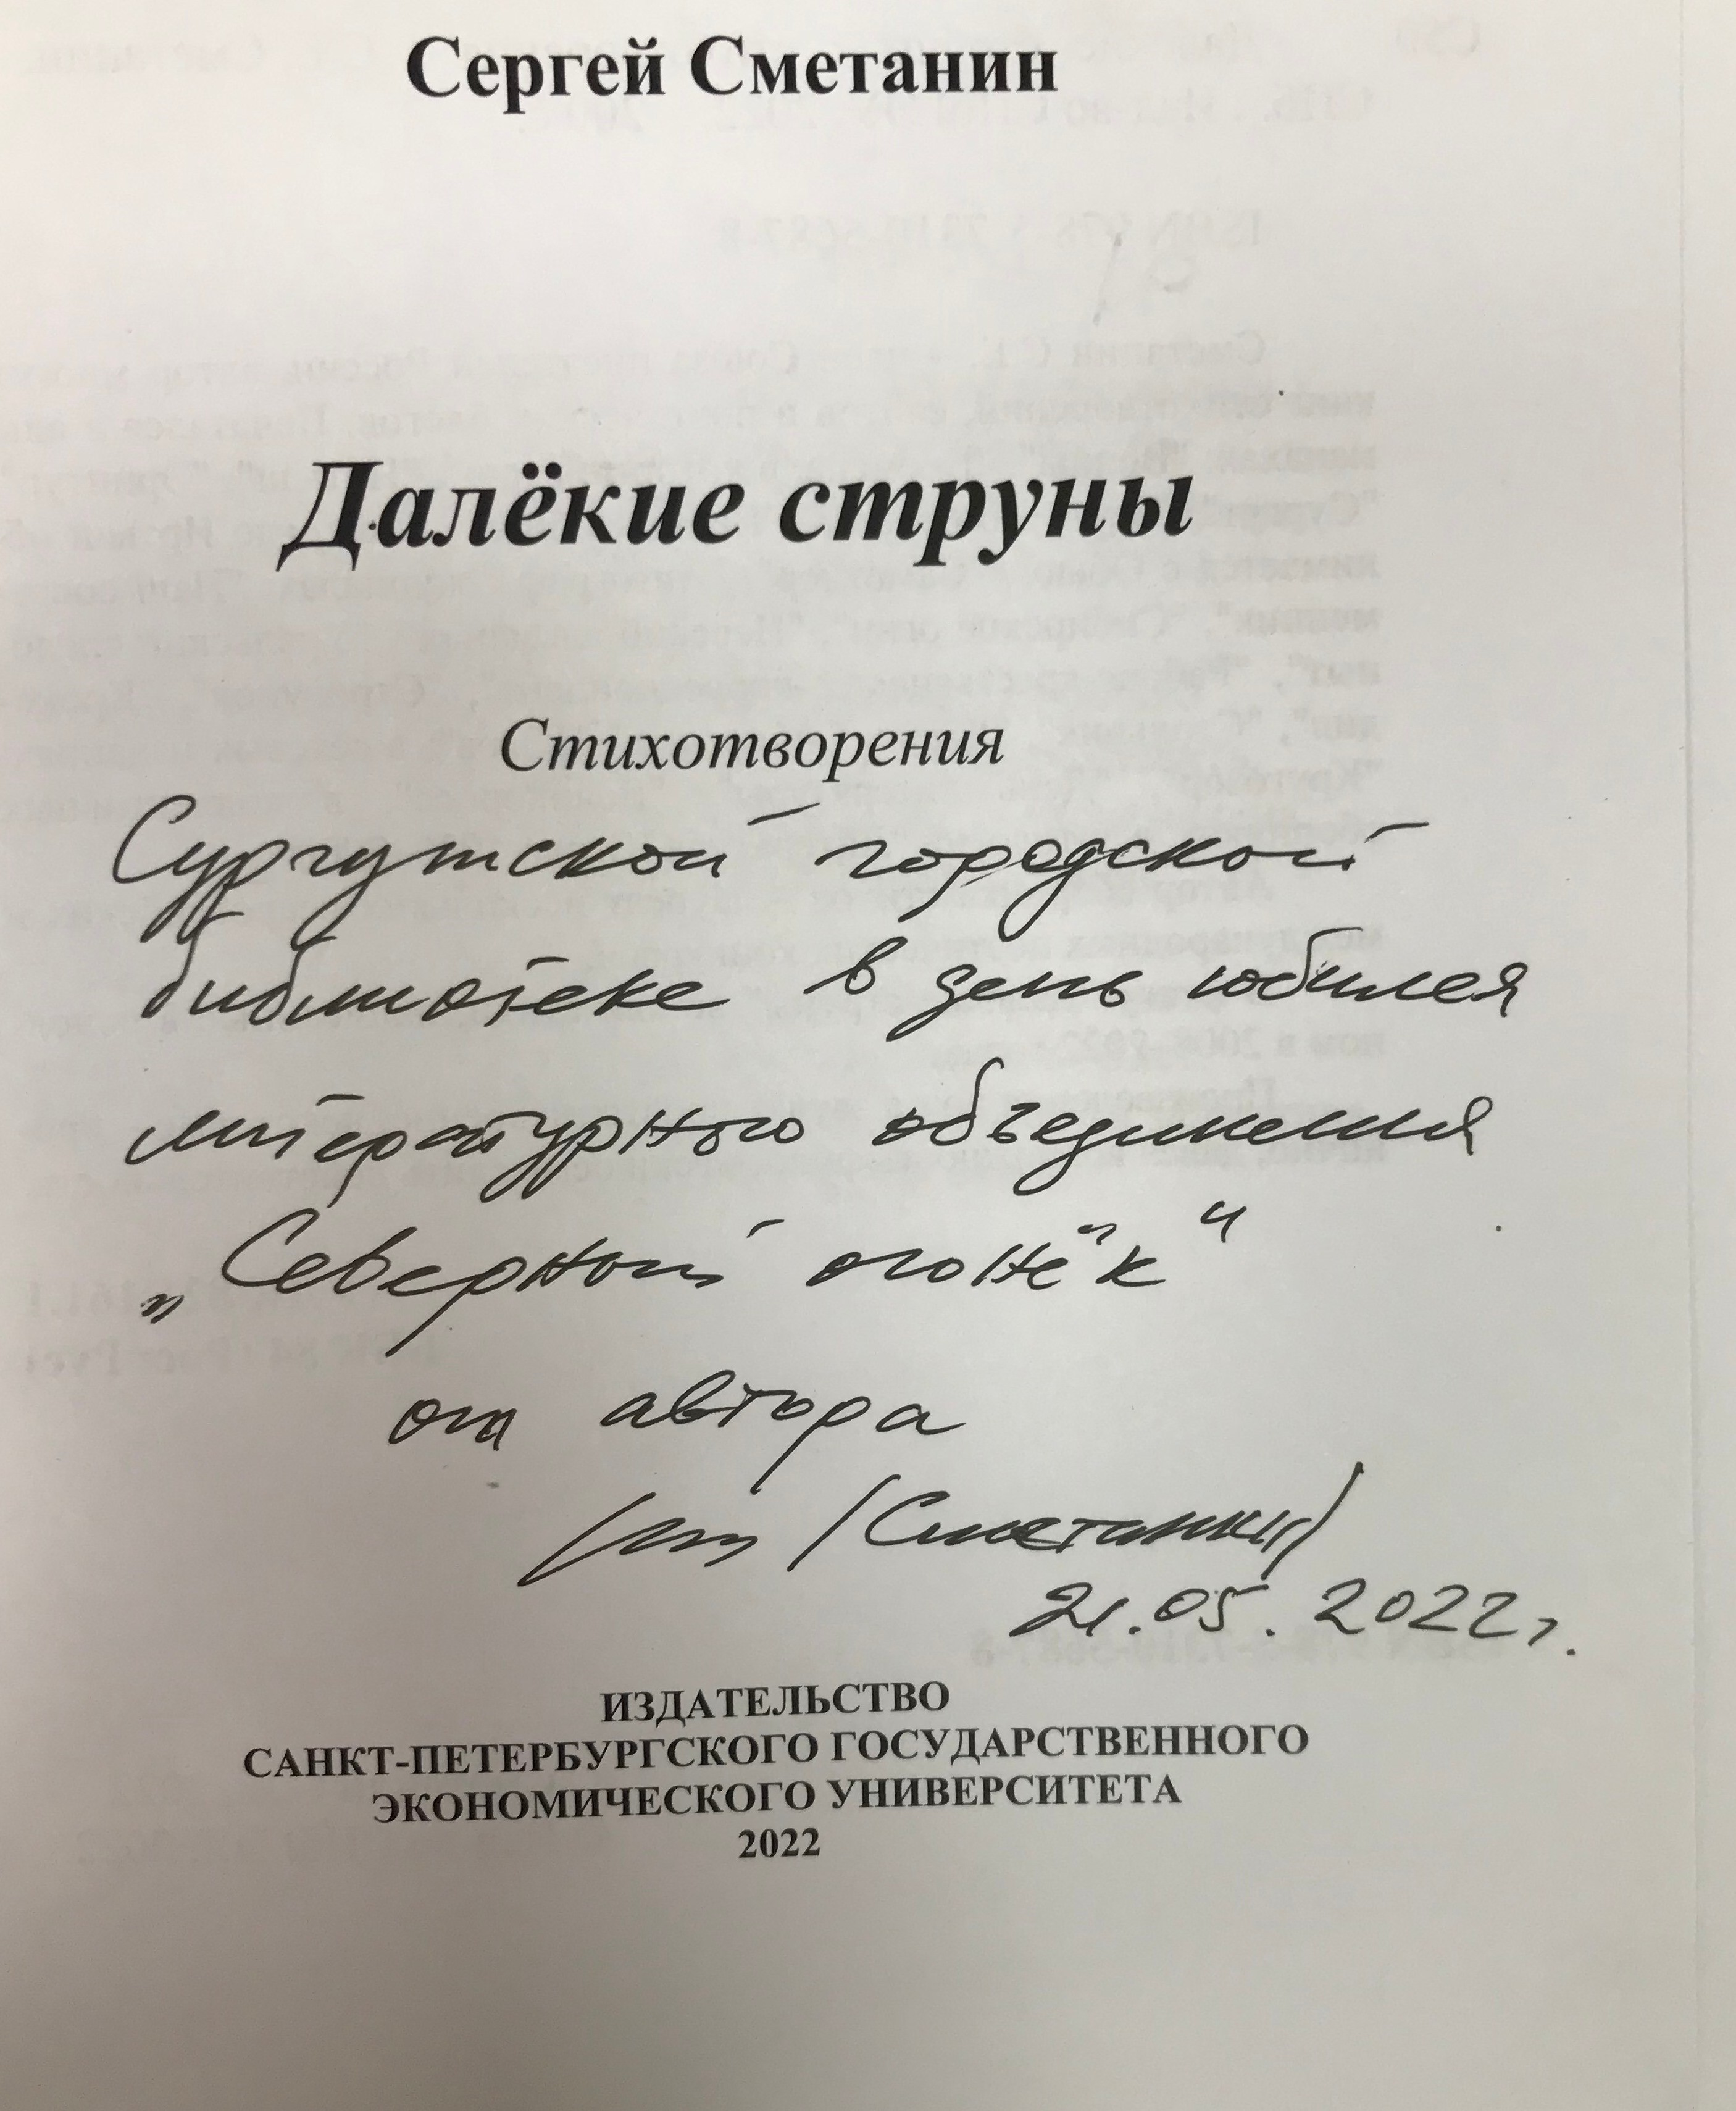 Сергей Сметанин
Далёкие струны
Стихотворения
Сургутской городской
библиотеке в день юбилея
литературного объединения
„Северный огонёк“
от автора
/Сметанин/
21.05.2022г.
ИЗДАТЕЛЬСТВО
САНКТ-ПЕТЕРБУРГСКОГО ГОСУДАРСТВЕННОГО
ЭКОНОМИЧЕСКОГО УНИВЕРСИТЕТА
2022